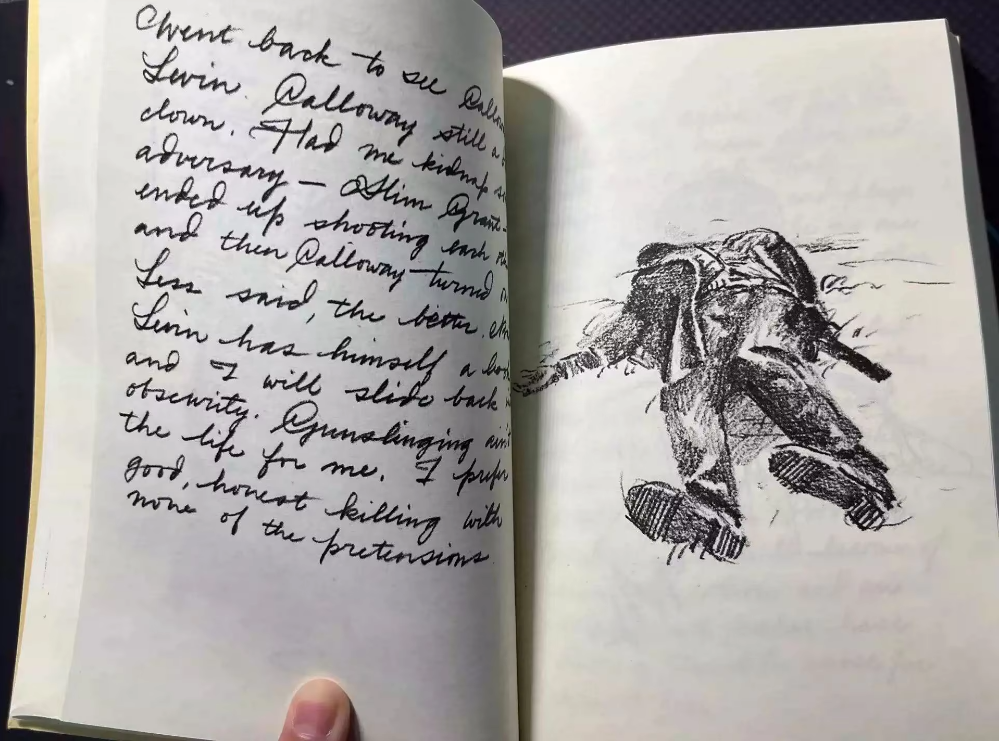 Went back to see
Levin. Calloway still a
clown. Had me kidnap
adversary – Slim Grant –
ended up shooting each
and then Calloway turned
Less said, the better.
Levin has himself a
and I will slide back
obscurity. Gunslinging ain't
the life for me. I prefer
good, honest killing with
none of the pretensions